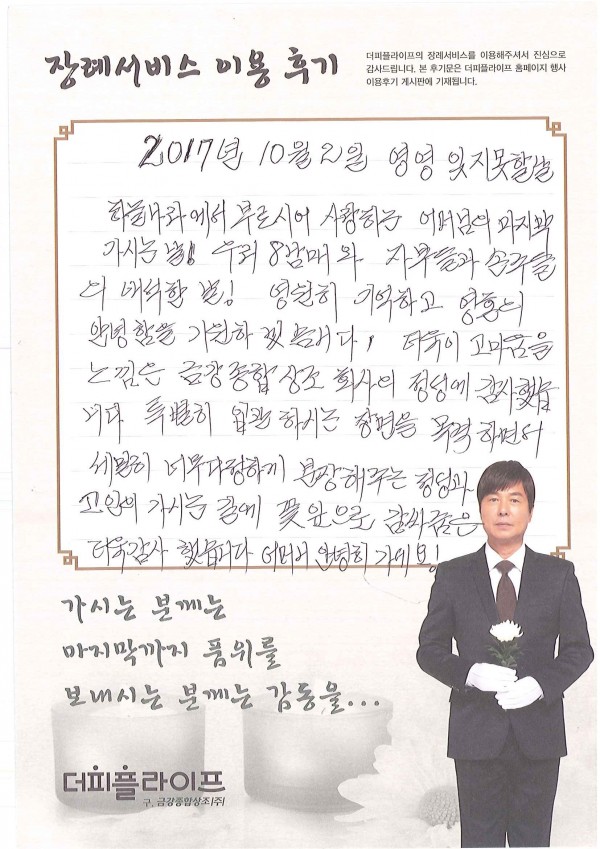 장례서비스 이용 후기
더피플라이프의 장례서비스를 이용해주셔서 진심으로
감사드립니다. 본 후기문은 더피플라이프 홈페이지 행사
이용후기 게시판에 기재됩니다.
2017년 10월 2일 영영 잊지못할날
하늘나라에서 부르시어 사랑하는 어머님의 마지막
가시는 날! 우리 8남매와 자부들과 손주들
의 애석한 날! 영원히 기억하고 영혼의
안녕함을 기원하겠습니다, 더욱이 고마움을
느낌은 금강종합상조 회사의 정성에 감사했습
니다 특별히 입관 하시는 장면을 목격하면서
세밀히 너무다정하게 분장해주는 정성과
고인의 가시는 길에 꽃 앞으로 감싸줌은
더욱감사 했습니다 어머니 안녕히 가세요!
가시는 분께는
마지막까지 품위를
보내시는 분께는 감동을...
더피플라이프
구. 금강종합상조(주)